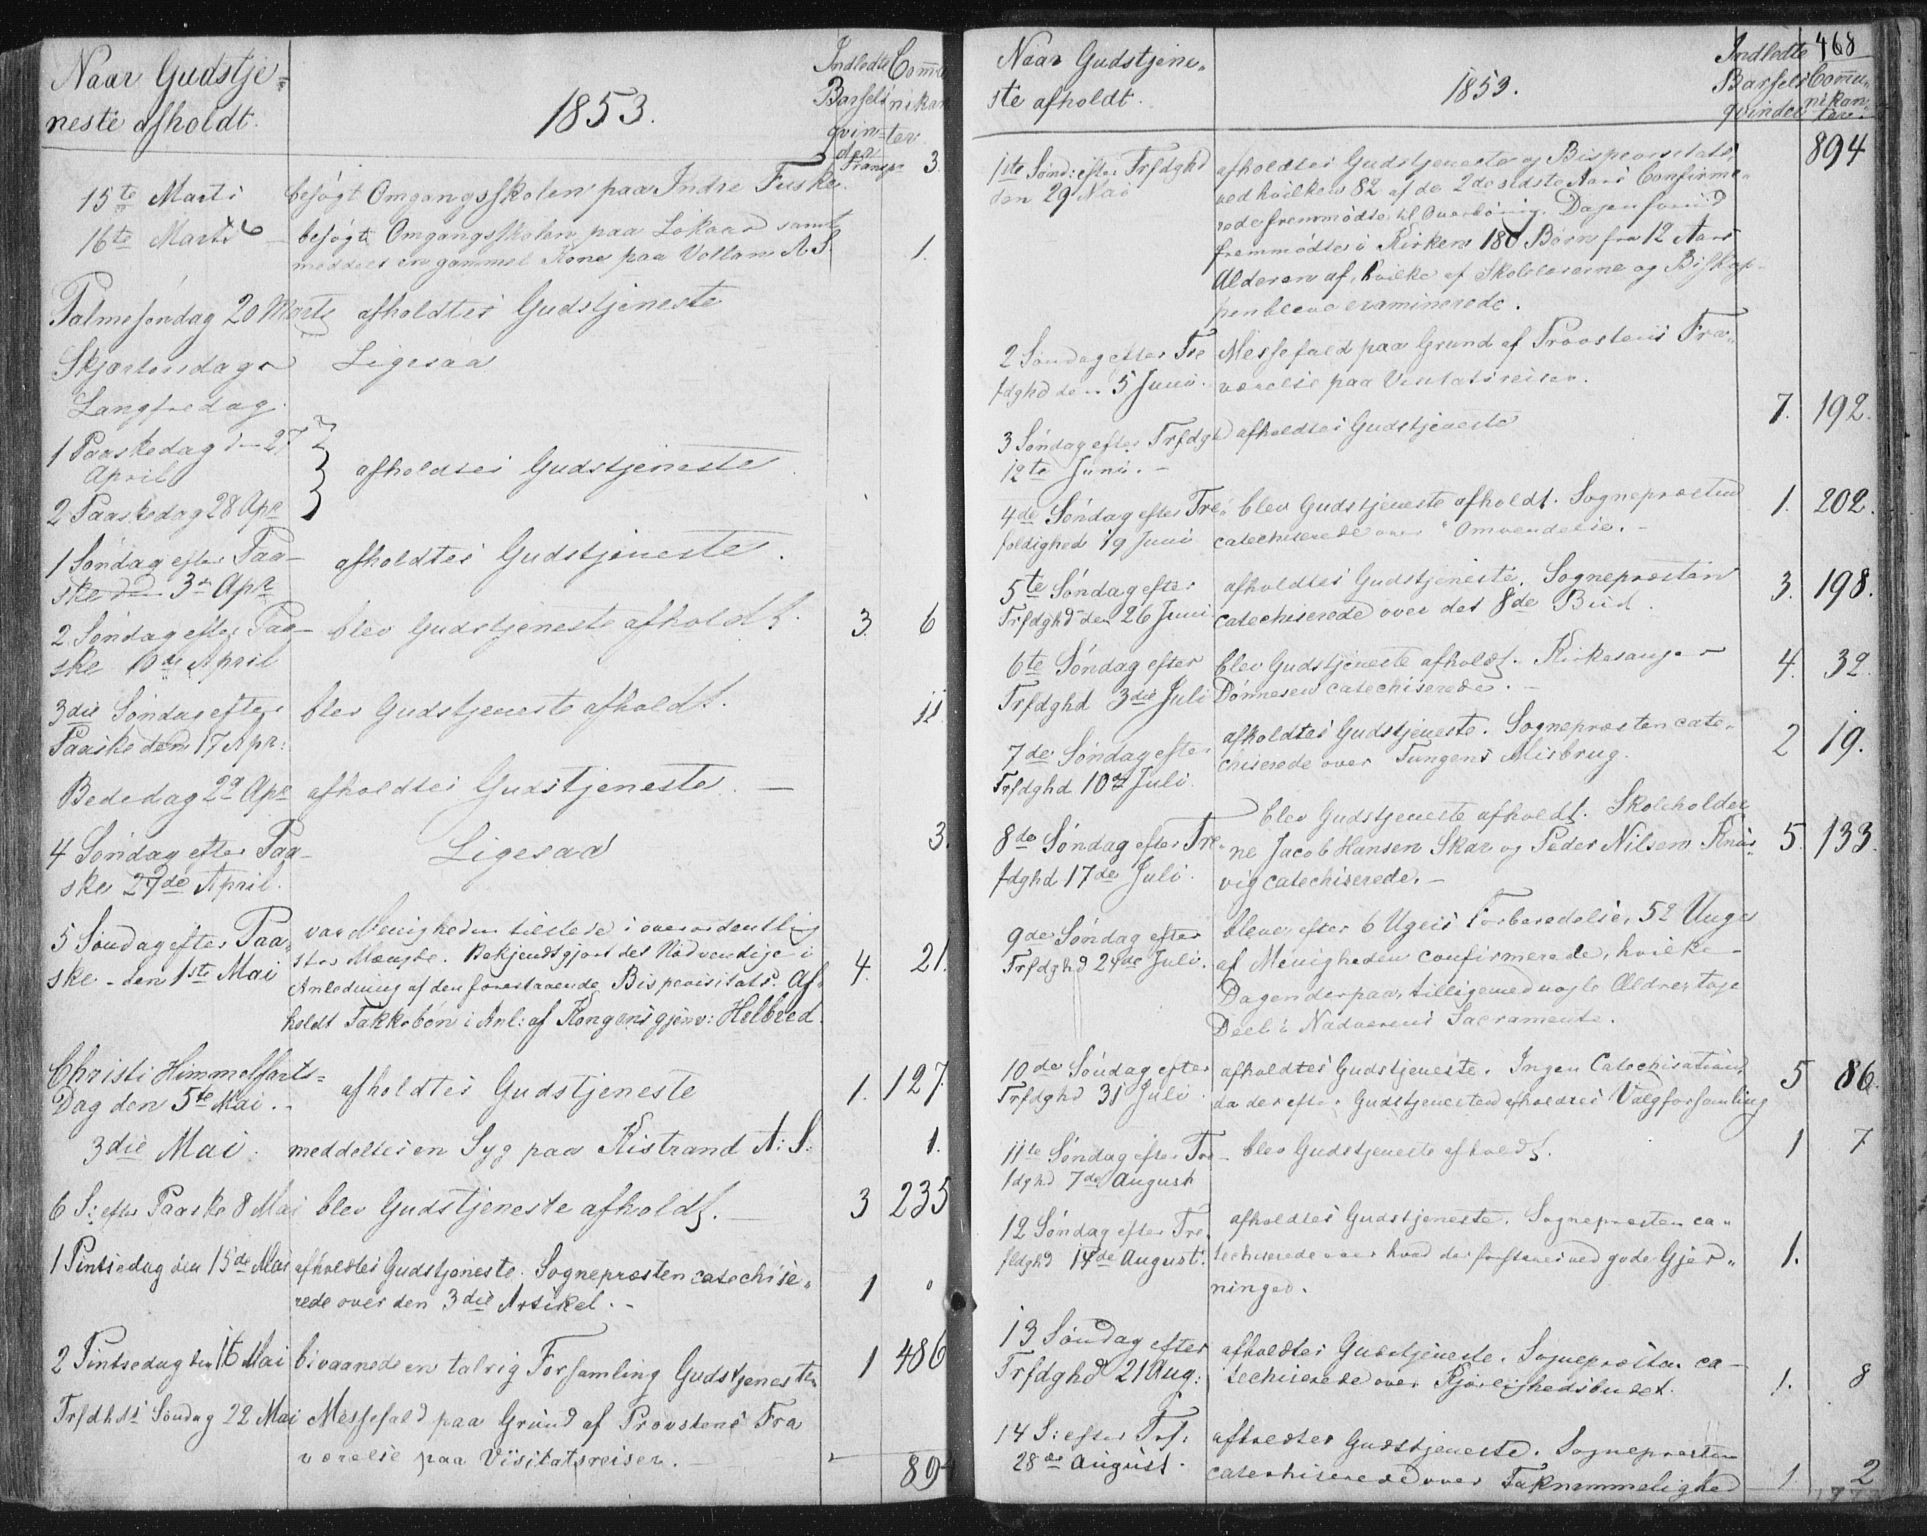 Naar Gudstje=
neste afholdt.
1853.
Indledte
Barsel-
qvin=
der
Commu
nikan
ter
Transp. 3.
15te Marts besøgt Omgangsskolen paa Indre Fuske.
16te Marts besøgt Omgangsskolen paa Løkaas samt
meddelt en gammel Kone paa Vollan A. S. 1.
Palmesøndag 20 Marts afholdtes Gudstjeneste
Skjærtorsdag Ligesaa
Langfredag.
1 Paaskedag den 27
April
afholdtes Gudstjeneste
2 Paaskedag 28 Apr
1 Søndag efter Paa-
ske den 3de Apr
afholdtes Gudstjeneste.
2 Søndag efter Paa-
ske 10de April
blev Gudstjeneste afholdt. 3. 6
3die Søndag efter
Paaske den 17 Apr:
blev Gudstjeneste afholdt. 11
Bededag 22 Apr afholdtes Gudstjeneste. —
4 Søndag efter Paa-
ske 24de April.
Ligesaa 3.
5 Søndag efter Paa-
ske - den 1ste Mai
var Menigheden tilstede i overordentlig
stor Mængde. Bekjendtgjort det Nødvendige i
Anledning af den forestaaende Bispevisitats. Af-
holdt Takkebøn i Anl: af Kongens gjenv: Helbred.
4. 21.
Christi Himmelfarts=
Dag den 5te Mai.
afholdtes Gudstjeneste 1. 127.
3die Mai. meddeltes en Syg paa Kistrand A: S: 1.
6 S: efter Paaske 8 Mai blev Gudstjeneste afholdt. — 3 235
1 Pintsedag den 15de Mai afholdtes Gudstjeneste. Sognepræsten catechise-
rede over den 3die Artikel. - 1
2 Pintsedag den 16 Mai bivaanede en talrig Forsamling Gudstjenesten 1 486
Trfdhds Søndag 22 Mai Messefald paa Grund af Provstens Fra
værelse paa Visitatsreiser. -
894
Naar Gudstjene-
ste afholdt.
1853.
Indledte
Barsel-
qvinder
468
Commu-
nikan-
ter.
894
1ste Sønd: efter Trfdghd
den 29 Mai
afholdtes Gudstjeneste og Bispevisitats,
ved hvilken 82 af de 2de sidste Aars Confirme-
rede fremmødte til Overhøring. Dagen forud
fremmødte i Kirken 180 Børn fra 12 Aars
Alderen af, hvilke af Skolelærerne og Biskop-
pen bleve examinerede.
2 Søndag efter Tre
fdghd den 5 Juni.
Messefald paa Grund af Provstens Fra-
værelse paa Visitatsreiser.
3 Søndag efter Trfdgh
12te Juni. -
afholdtes Gudstjeneste
7. 192.
4de Søndag efter Tre-
foldighed 19 Juni
blev Gudstjeneste afholdt. Sognepræsten
catechiserede over Omvendelse. -
1. 202.
5te Søndag efter
Trfdghd den 26 Juni
afholdtes Gudstjeneste. Sognepræsten
catechiserede over det 8de Bud.
3. 198.
6te Søndag efter
Trfdghd 3die Juli
blev Gudstjeneste afholdt. Kirkesanger
Dønnesen catechiserede. -
4. 32.
7de Søndag efter
Trfdghd 10de Juli.
afholdtes Gudstjeneste. Sognepræsten cate-
chiserede over Tungens Misbrug.
2 19.
8de Søndag efter Tre-
fdghd 17de Juli.
blev Gudstjeneste afholdt. Skoleholder
ne Jacob Hansen Skar og Peder Nilsen
vig catechiserede. -
5. 133.
9de Søndag efter
Trfdghd 24de Juli.
bleve efter 6 Ugers Forberedelse, 52 Unge
af Menigheden confirmerede, hvilke
Dagen derpaa, tilligemed nogle Ældre, toge
Deel i Nadverens Sacramente.
10de Søndag efter
Trfdghd 31 Juli
afholdtes Gudstjeneste. Ingen Catechisation,
da der efter Gudstjenesten afholdtes Valgforsamling
5 86.
11te Søndag efter Tre-
fdghd 7de August
blev Gudstjeneste afholdt.
1 7
12 Søndag efter Tre
fldghd 14de August.
afholdtes Gudstjeneste. Sognepræsten ca-
techiserede over hvad der forstaaes ved gode Gjer-
ninger.
1.
13 Søndag efter
Trfdghd 21 Aug:
afholdtes Gudstjeneste. Sognepræsten ca-
techiserede over Kjærlighedsbudet.
1. 8
14 S: efter Tref:
28de August.
afholdtes Gudstjeneste. Sognepræsten
catechiserede over Taknemmelighed
1 2